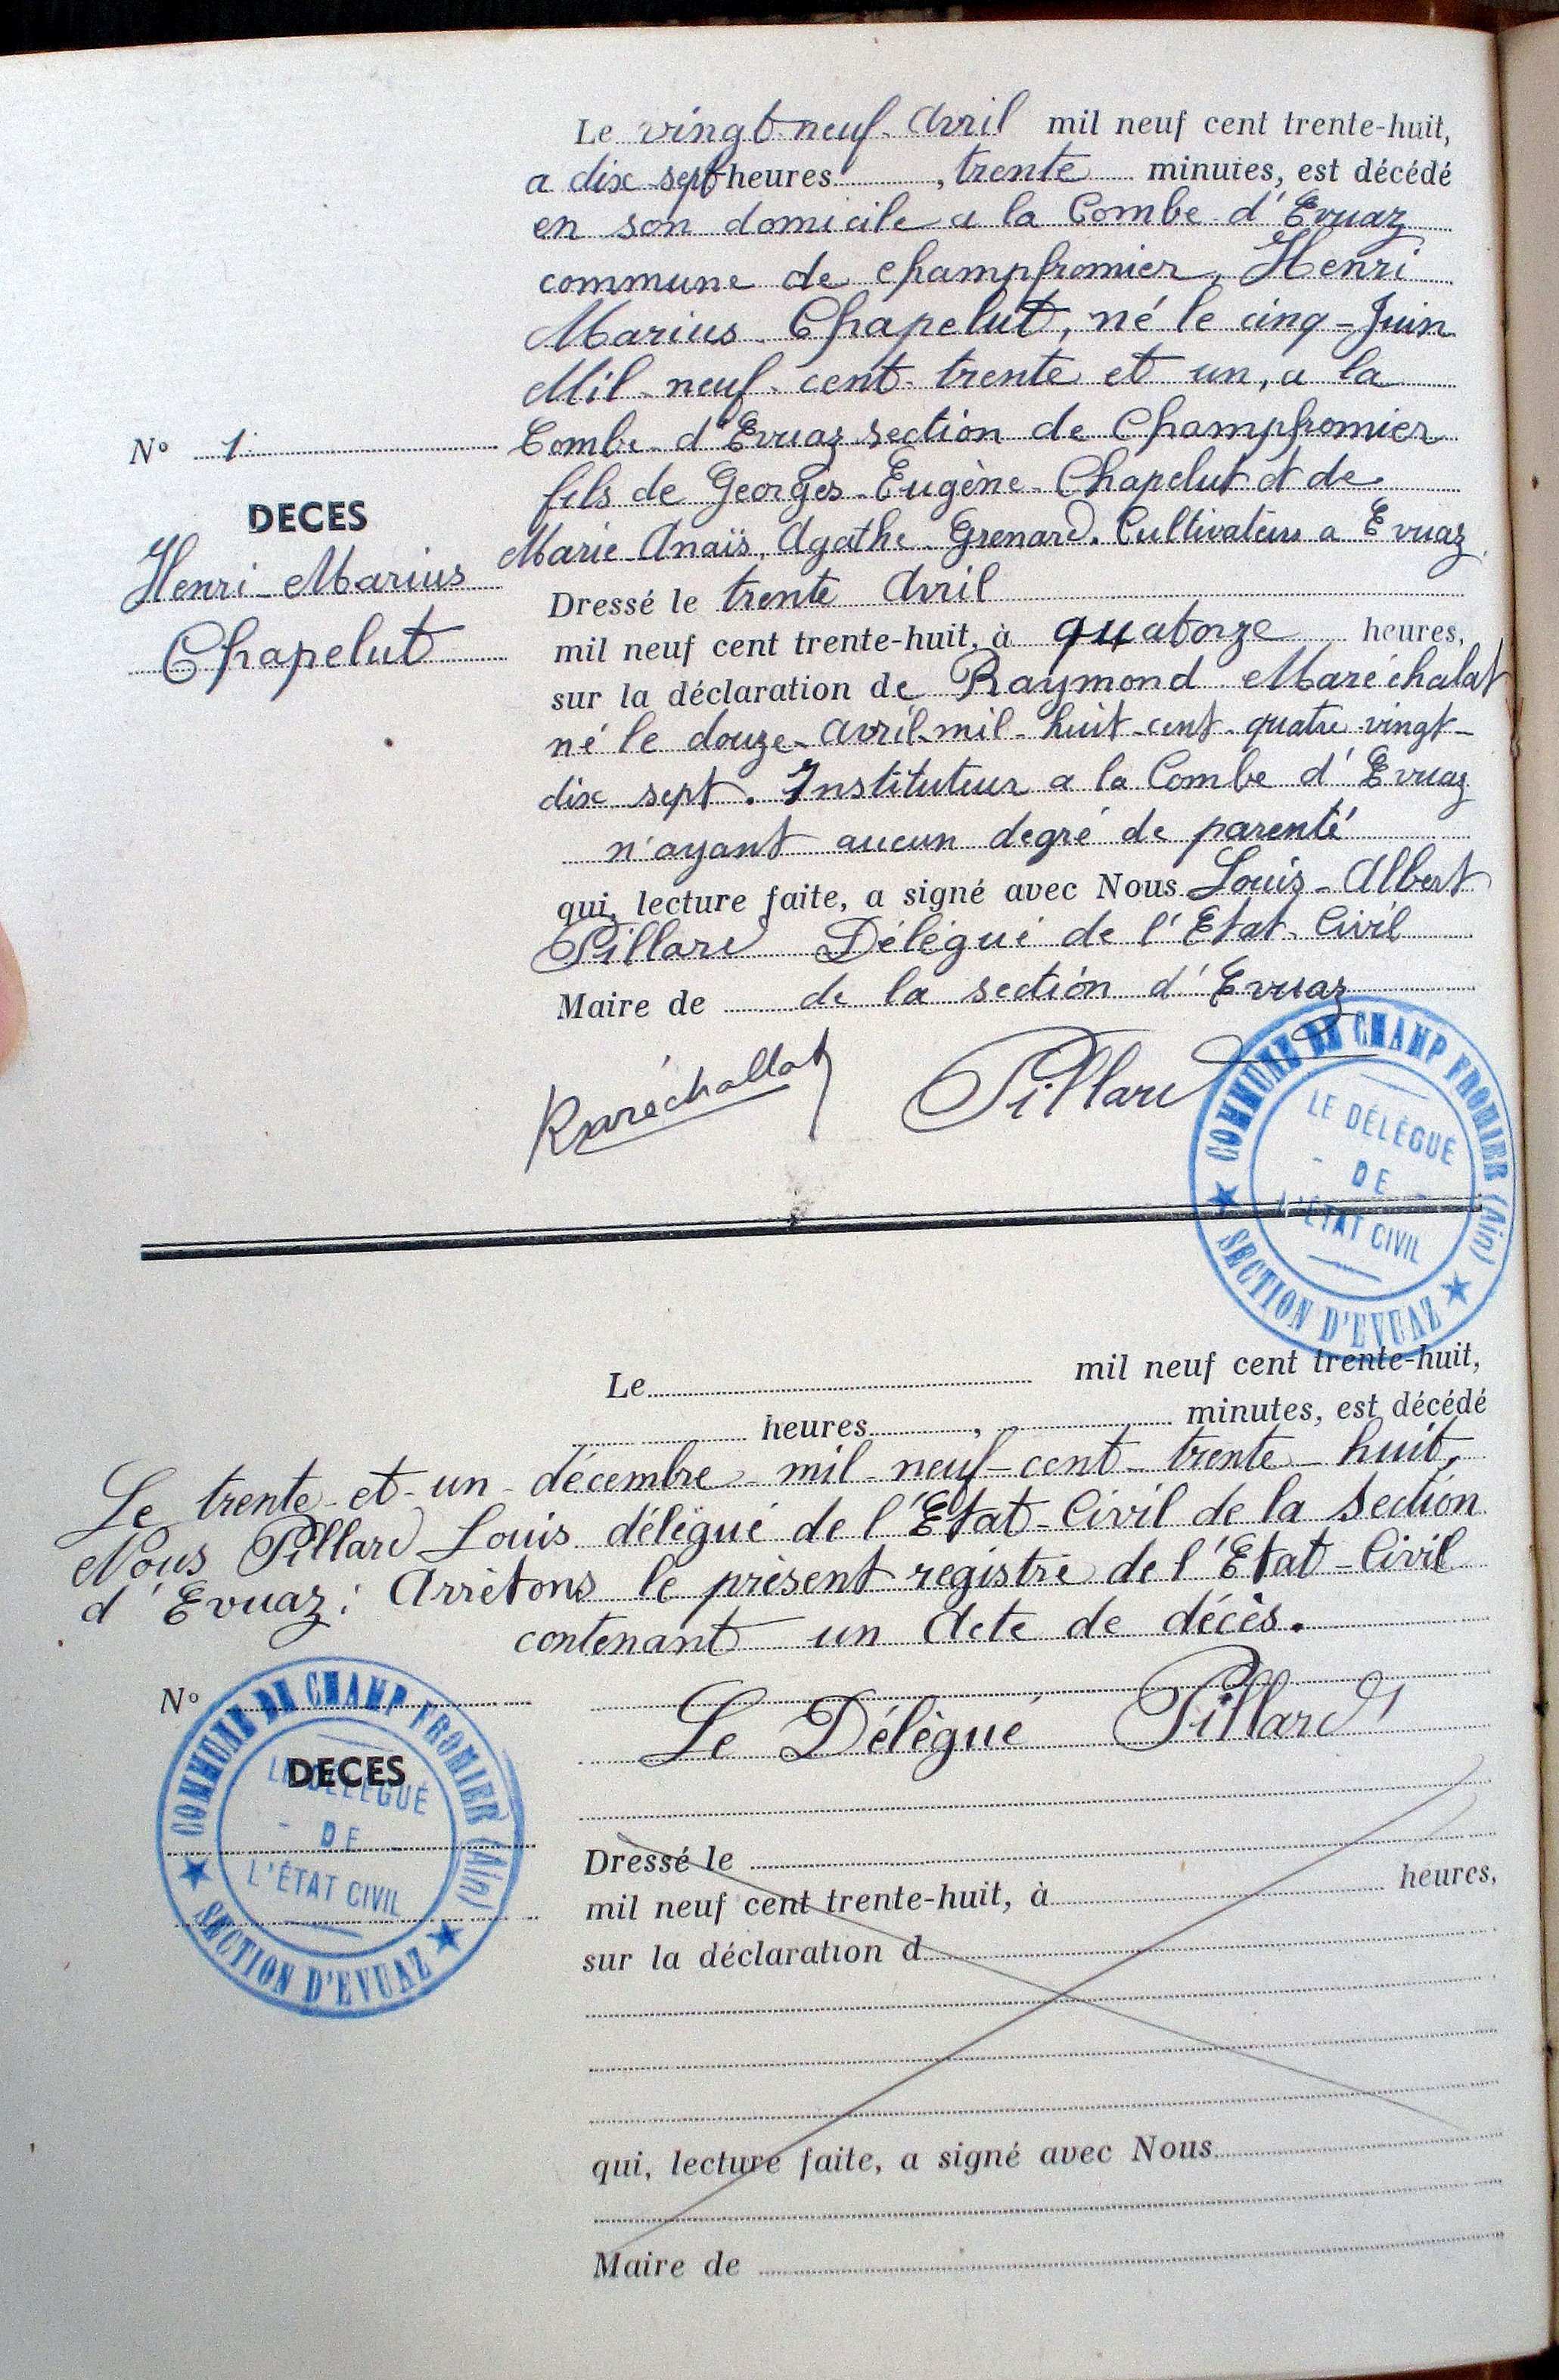 Le vingt-neuf Avril mil neuf cent trente-huit,
a dix sept heures, trente minutes, est décédé
en son domicile a la Combe d'Evuaz
commune de Champfromier, Henri
Marius Chapelut, né le cinq-Juin
Mil-neuf-cent-trente et un, a la
Combe d'Evuaz section de Champfromier
fils de Georges-Eugène-Chapelut et de
Marie-Anaïs, Agathe Grenard. Cultivateurs a Evuaz
N° 1
DECES
Henri-Marius
Chapelut
Dressé le trente Avril
mil neuf cent trente-huit, à quatorze heures,
sur la déclaration de Raymond Maréchalat
né le douze-avril-mil-huit-cent-quatre-vingt-
dix sept. Instituteur a la Combe d'Evuaz
n'ayant aucun degré de parenté
qui, lecture faite, a signé avec Nous Louis-Albert
Pillard Délégué de l'Etat-Civil
Maire de de la section d'Evuaz
Rmaréchallat Pillard
COMMUNE DE CHAMP FROMIER (Ain)
LE DÉLÉGUÉ
- DE -
L'ÉTAT CIVIL
SECTION D'EVUAZ
Le mil neuf cent trente-huit,
heures, minutes, est décédé
Le trente-et-un-décembre-mil-neuf-cent-trente-huit,
Nous Pillard Louis délégué de l'Etat-Civil de la Section
d'Evuaz: Arrêtons le présent registre de l'Etat-Civil
contenant un Acte de décès.
Le Délégué Pillard
N°
DECES
COMMUNE DE CHAMP FROMIER (Ain)
LE DÉLÉGUÉ
- DE -
L'ÉTAT CIVIL
SECTION D'EVUAZ
Dressé le
mil neuf cent trente-huit, à heures,
sur la déclaration d
qui, lecture faite, a signé avec Nous
Maire de